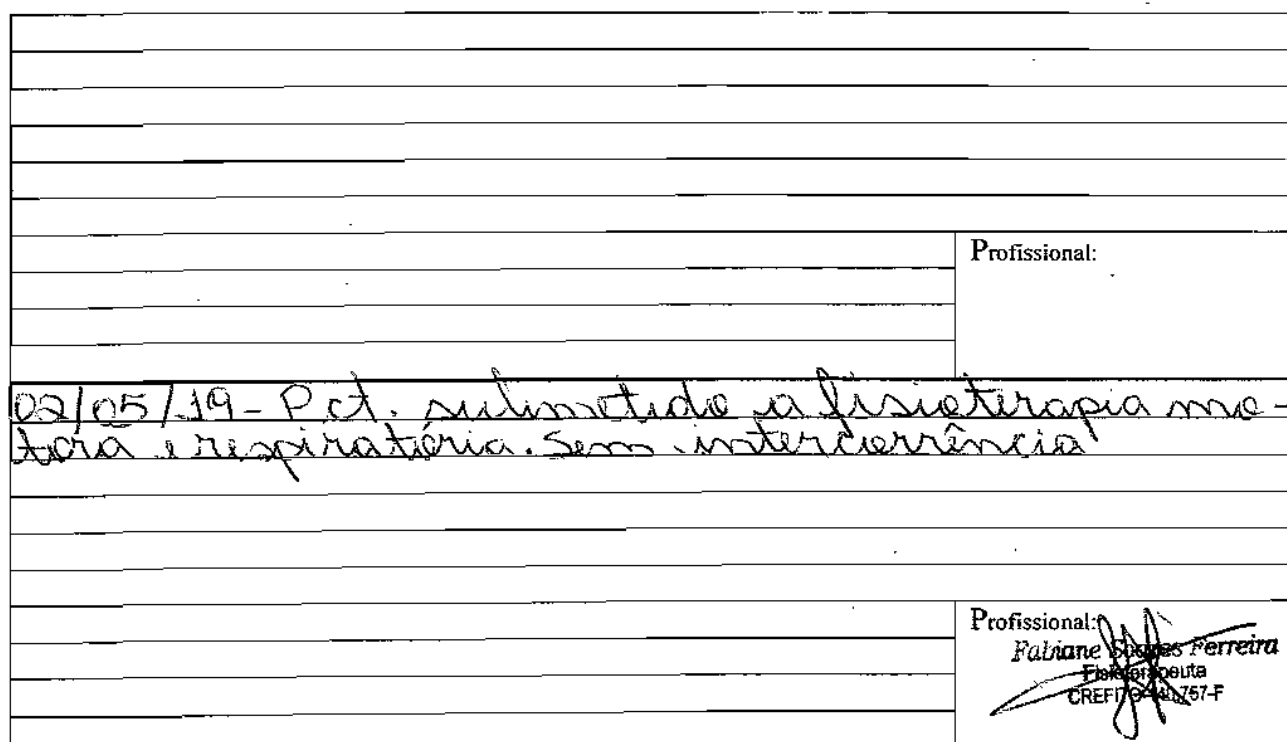 Profissional:
02/05/19 - Pct. submetido a fisioterapia mo-
tora e respiratória. Sem intercorrência
Profissional:
Fabiane Soares Ferreira
Fisioterapeuta